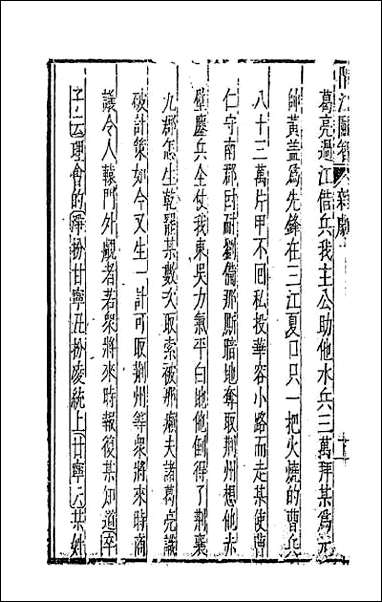 隔江鬬智 雜劇 十
葛亮過江借兵我主公助他水兵三萬拜某為元
帥黃盖爲先鋒在三江夏口只一把火燒的曹兵
八十三萬片甲不囘私投華容小路而走某使曹
仁守南郡叵耐劉備那厮暗地奪取荆州想他赤
壁鏖兵全仗我東吳力氣平白地他倒得了荆襄
九郡怎生乾罷某數次取索被那癩夫諸葛亮識
破計策如今又生一計可取荆州等衆將來時商
議令人轅門外覷者若衆將來時報復某知道卒
子云理會的淨扮甘寧丑扮凌統上甘寧云某姓